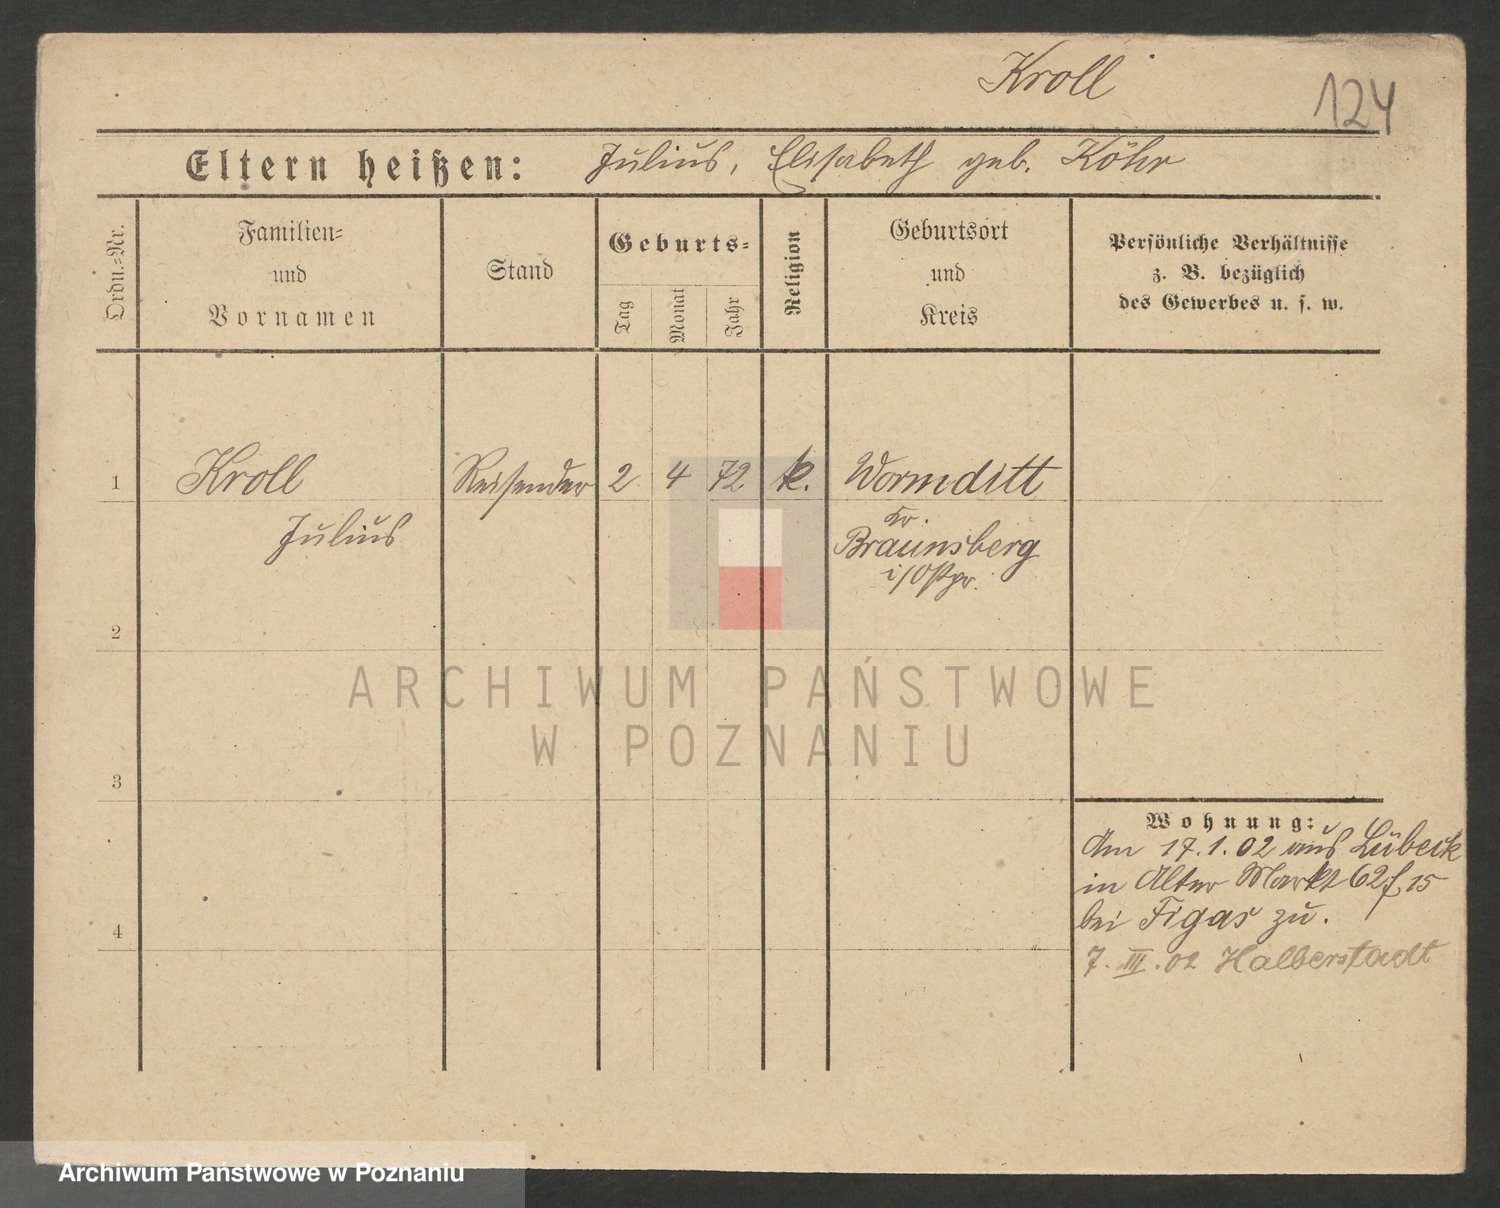 Kroll
124
Eltern heißen: Julius, Elisabeth geb. Köhr
Ordn.-Nr.
Familien-
und
Vornamen
Stand
Geburts-
Tag
Monat
Jahr
Religion
Geburtsort
und
Kreis
Persönliche Verhältnisse
z. B. bezüglich
des Gewerbes u. s. w.
1 Kroll Reisender 2 4 72 k. Wormditt
Julius
Kr.
Braunsberg
i/Ostpr.
2
3
4
Wohnung:
Am 17.1.02 aus Lübeck
in Alter Markt 62 f. 15
bei Figas zu.
7. III. 02 Halberstadt
ARCHIWUM PAŃSTWOWE
W POZNANIU
Archiwum Państwowe w Poznaniu